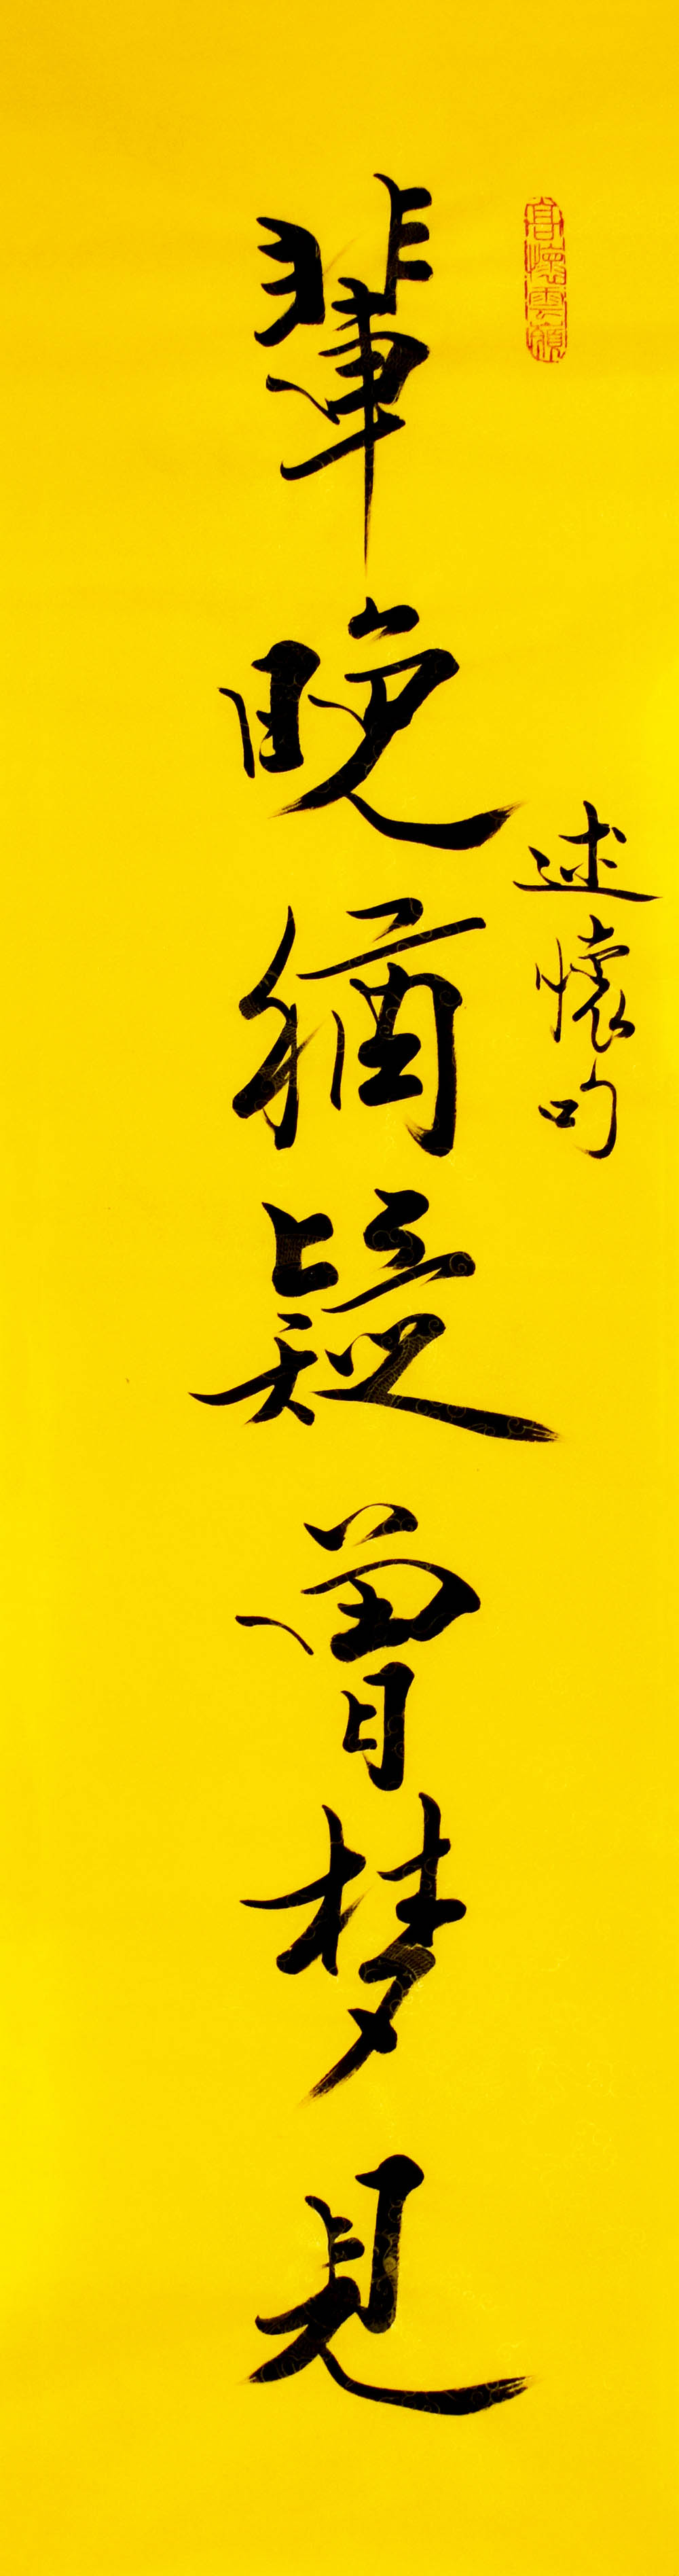 述懷句
輩晚猶疑曾梦見